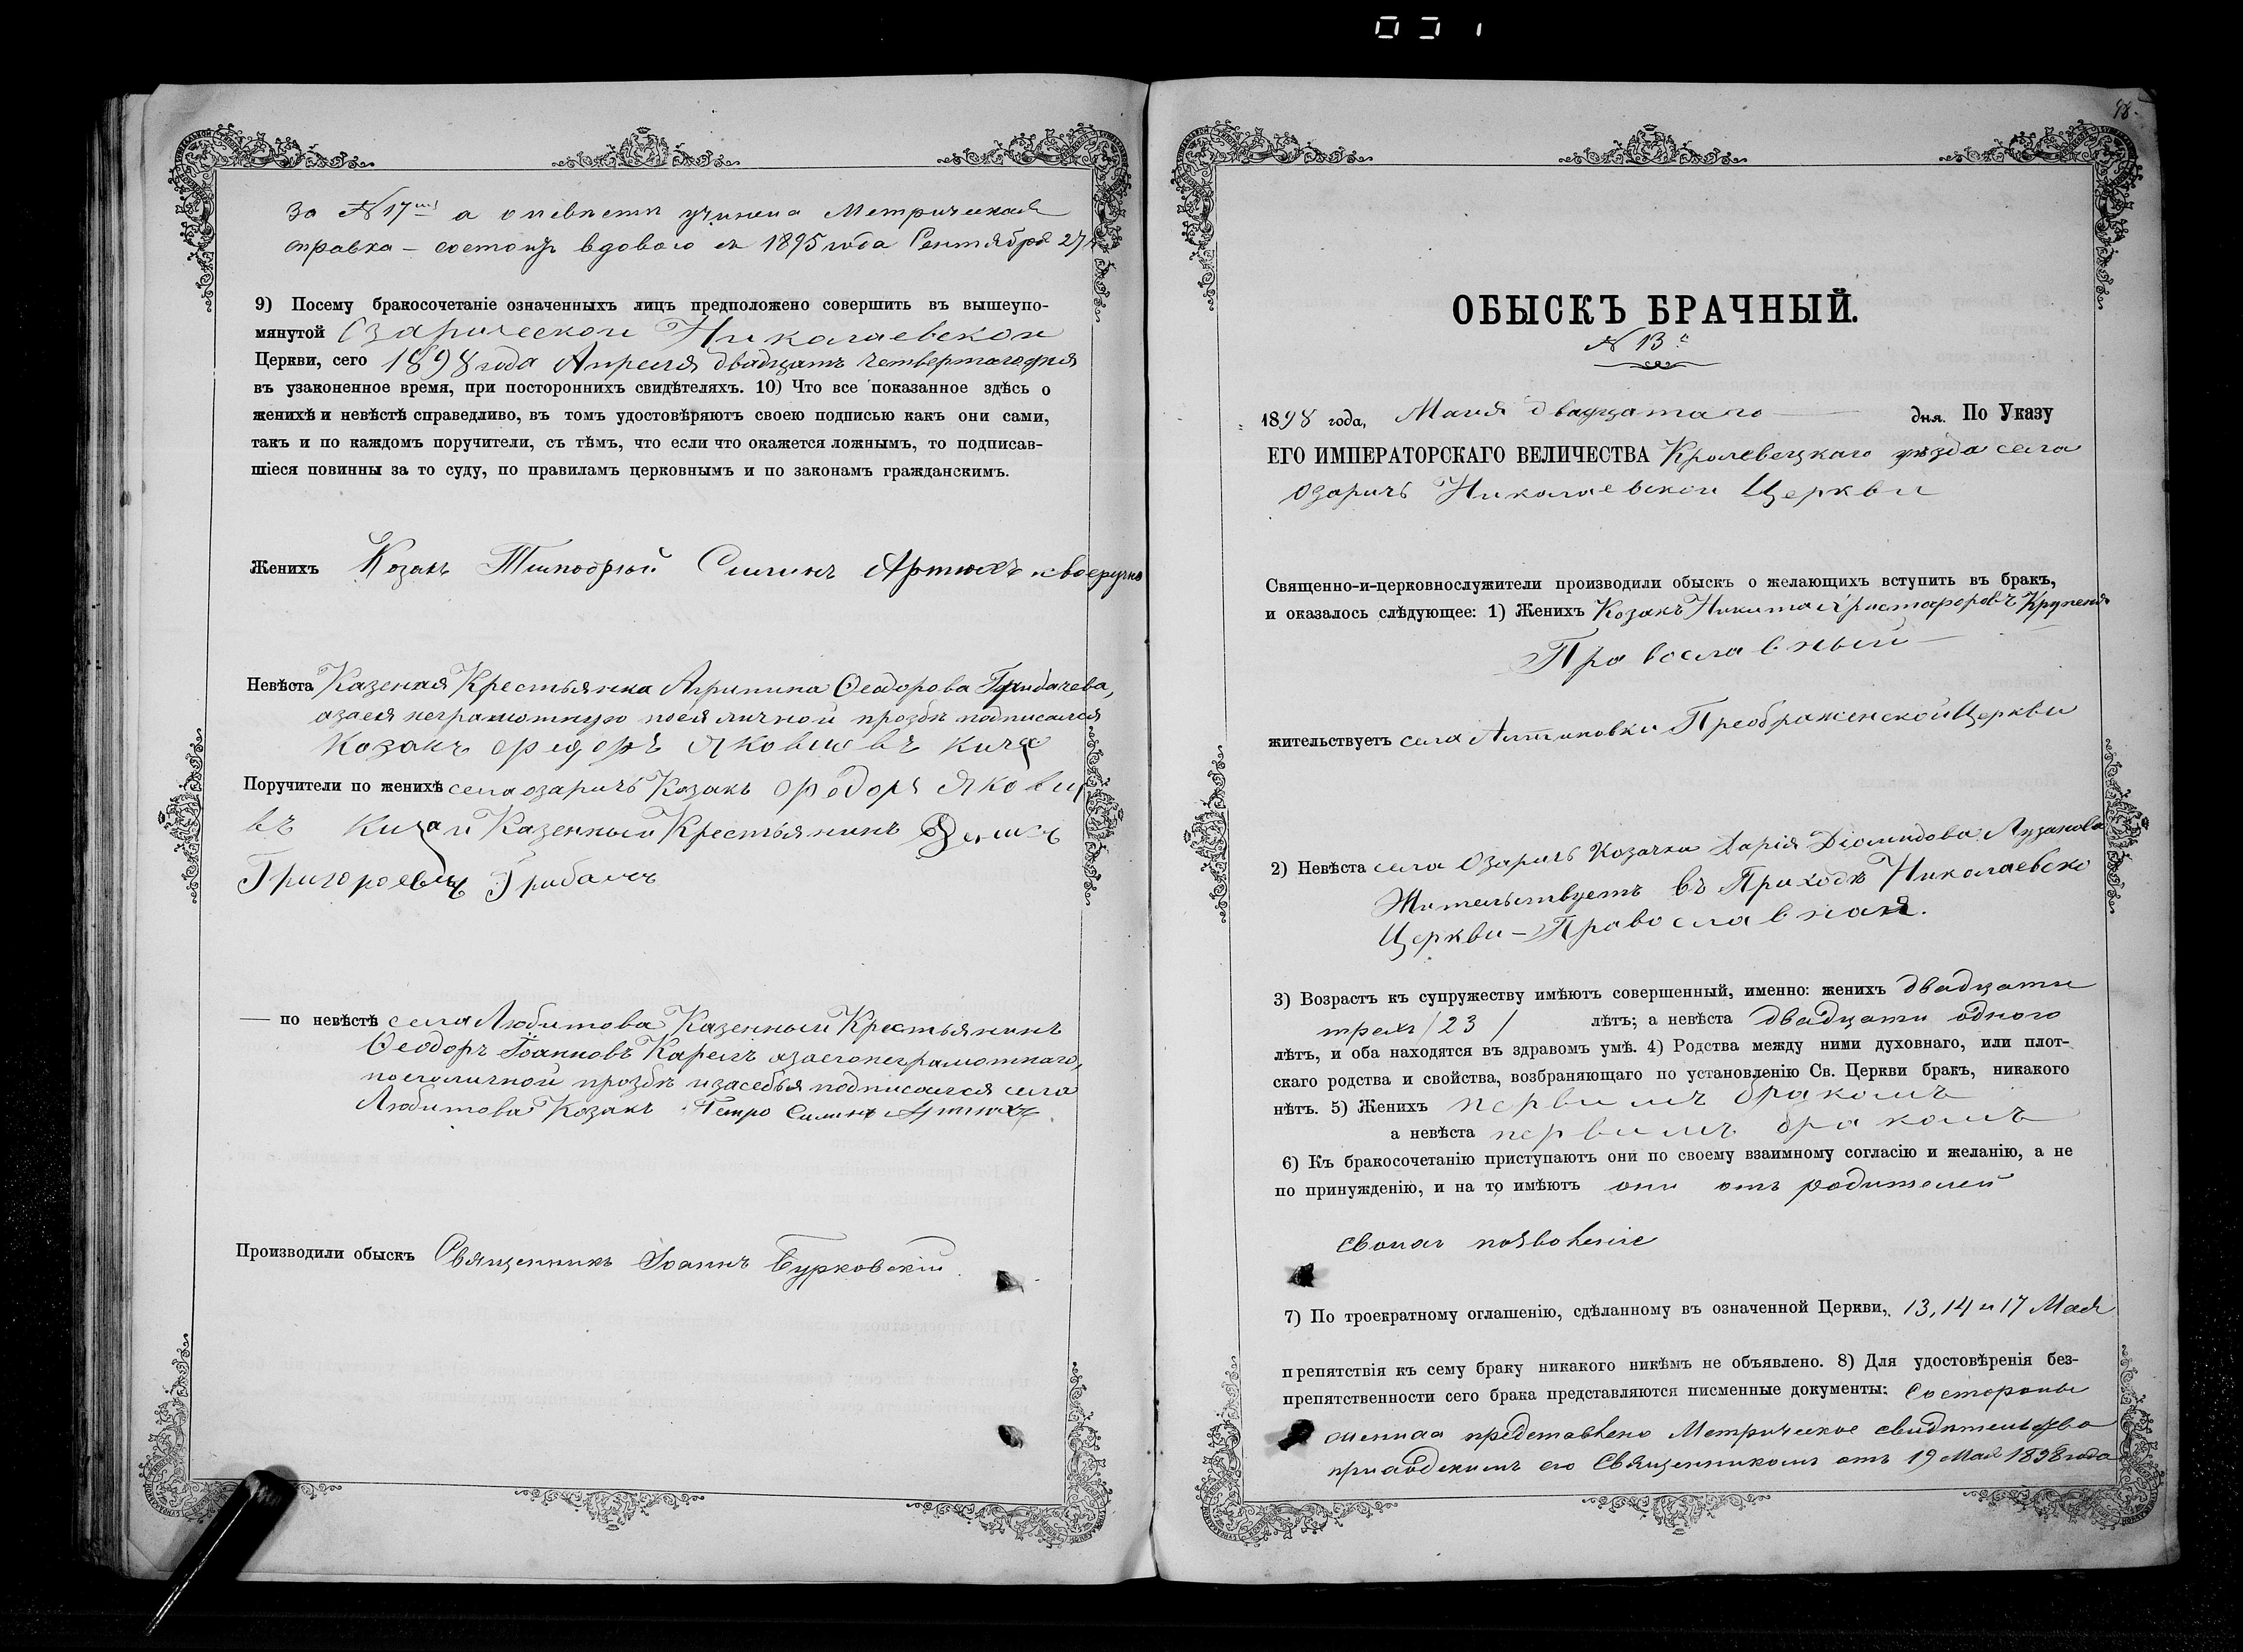 031
За N 17мъ а о невѣстѣ учинена Метрическая
справка – состоитъ вдовою съ 1895 года Сентября 27
9) Посему бракосочетаніе означенныхъ лицъ предположено совершить въ вышеупо-
мянутой Озарической Николаевской
Церкви, сего 1898 года Апреля двадцать четвертаго дня
въ узаконенное время, при постороннихъ свидѣтеляхъ. 10) Что все показанное здѣсь о
женихѣ и невѣстѣ справедливо, въ томъ удостовѣряютъ своею подписью какъ они сами,
такъ и по каждомъ поручители, съ тѣмъ, что если что окажется ложнымъ, то подписав-
шіеся повинны за то суду, по правиламъ церковнымъ и по законамъ гражданскимъ.
Женихъ Козакъ Тимофѣй Силинъ Артюхъ своеручно
Невѣста Казеная Крестьянка Агрипина Ѳеодорова Грибачева,
азаея неграмотную поея личной прозбѣ подписался
Козакъ Федоръ Яковлевъ Кича
Поручители по женихѣ села озаричъ Козакъ Федоръ Яковл
въ Кича и Казенный Крестьянинъ
Григоровичъ
— по невѣстѣ села Любитова Казенный Крестьянинъ
Ѳеодоръ Іоанновъ Карегъ азаегонеграмотнаго,
поеголичной прозбѣ изасебя подписался села
Любитова Козакъ Петро Силинъ Артюхъ
Производили обыскъ Священникъ Іоаннъ Бурковскій
48.
ОБЫСКЪ БРАЧНЫЙ.
N 13.
1898 года, Маия двадцатаго дня. По Указу
ЕГО ИМПЕРАТОРСКАГО ВЕЛИЧЕСТВА Кролевецкаго уѣзда села
Озаричъ Николаевской Церкви
Священно-и-церковнослужители производили обыскъ о желающихъ вступить въ бракъ,
и оказалось слѣдующее: 1) Женихъ Козакъ Никита Христофоровъ Крупеня
Православный —
жительствуетъ села Алтиновки Преображенской Церкви
2) Невѣста села Озаричъ Козачка Дарія Діомидова Лузанова
Жительствуетъ въ Приходѣ Николаевско
Церкви – Православная.
3) Возрастъ къ супружеству имѣютъ совершенный, именно: женихъ двадцати
трехъ /23/ лѣтъ; а невѣста двадцати одного
лѣтъ, и оба находятся въ здравомъ умѣ. 4) Родства между ними духовнаго, или плот-
скаго родства и свойства, возбраняющаго по установленію Св. Церкви бракъ, никакого
нѣтъ. 5) Женихъ первимъ бракомъ
а невѣста первимъ бракомъ
6) Къ бракосочетанію приступаютъ они по своему взаимному согласію и желанію, а не
по принужденію, и на то имѣютъ они отъ родителей
своихъ позволеніе
7) По троекратному оглашенію, сдѣланному въ означенной Церкви, 13, 14 и 17 Мая
препятствія къ сему браку никакого никѣмъ не объявлено. 8) Для удостовѣренія без-
препятственности сего брака представляются писменные документы: Со стороны
жениха представлено Метрическое свидѣтельство
приходскимъ его Священникомъ отъ 19 Мая 1898 года